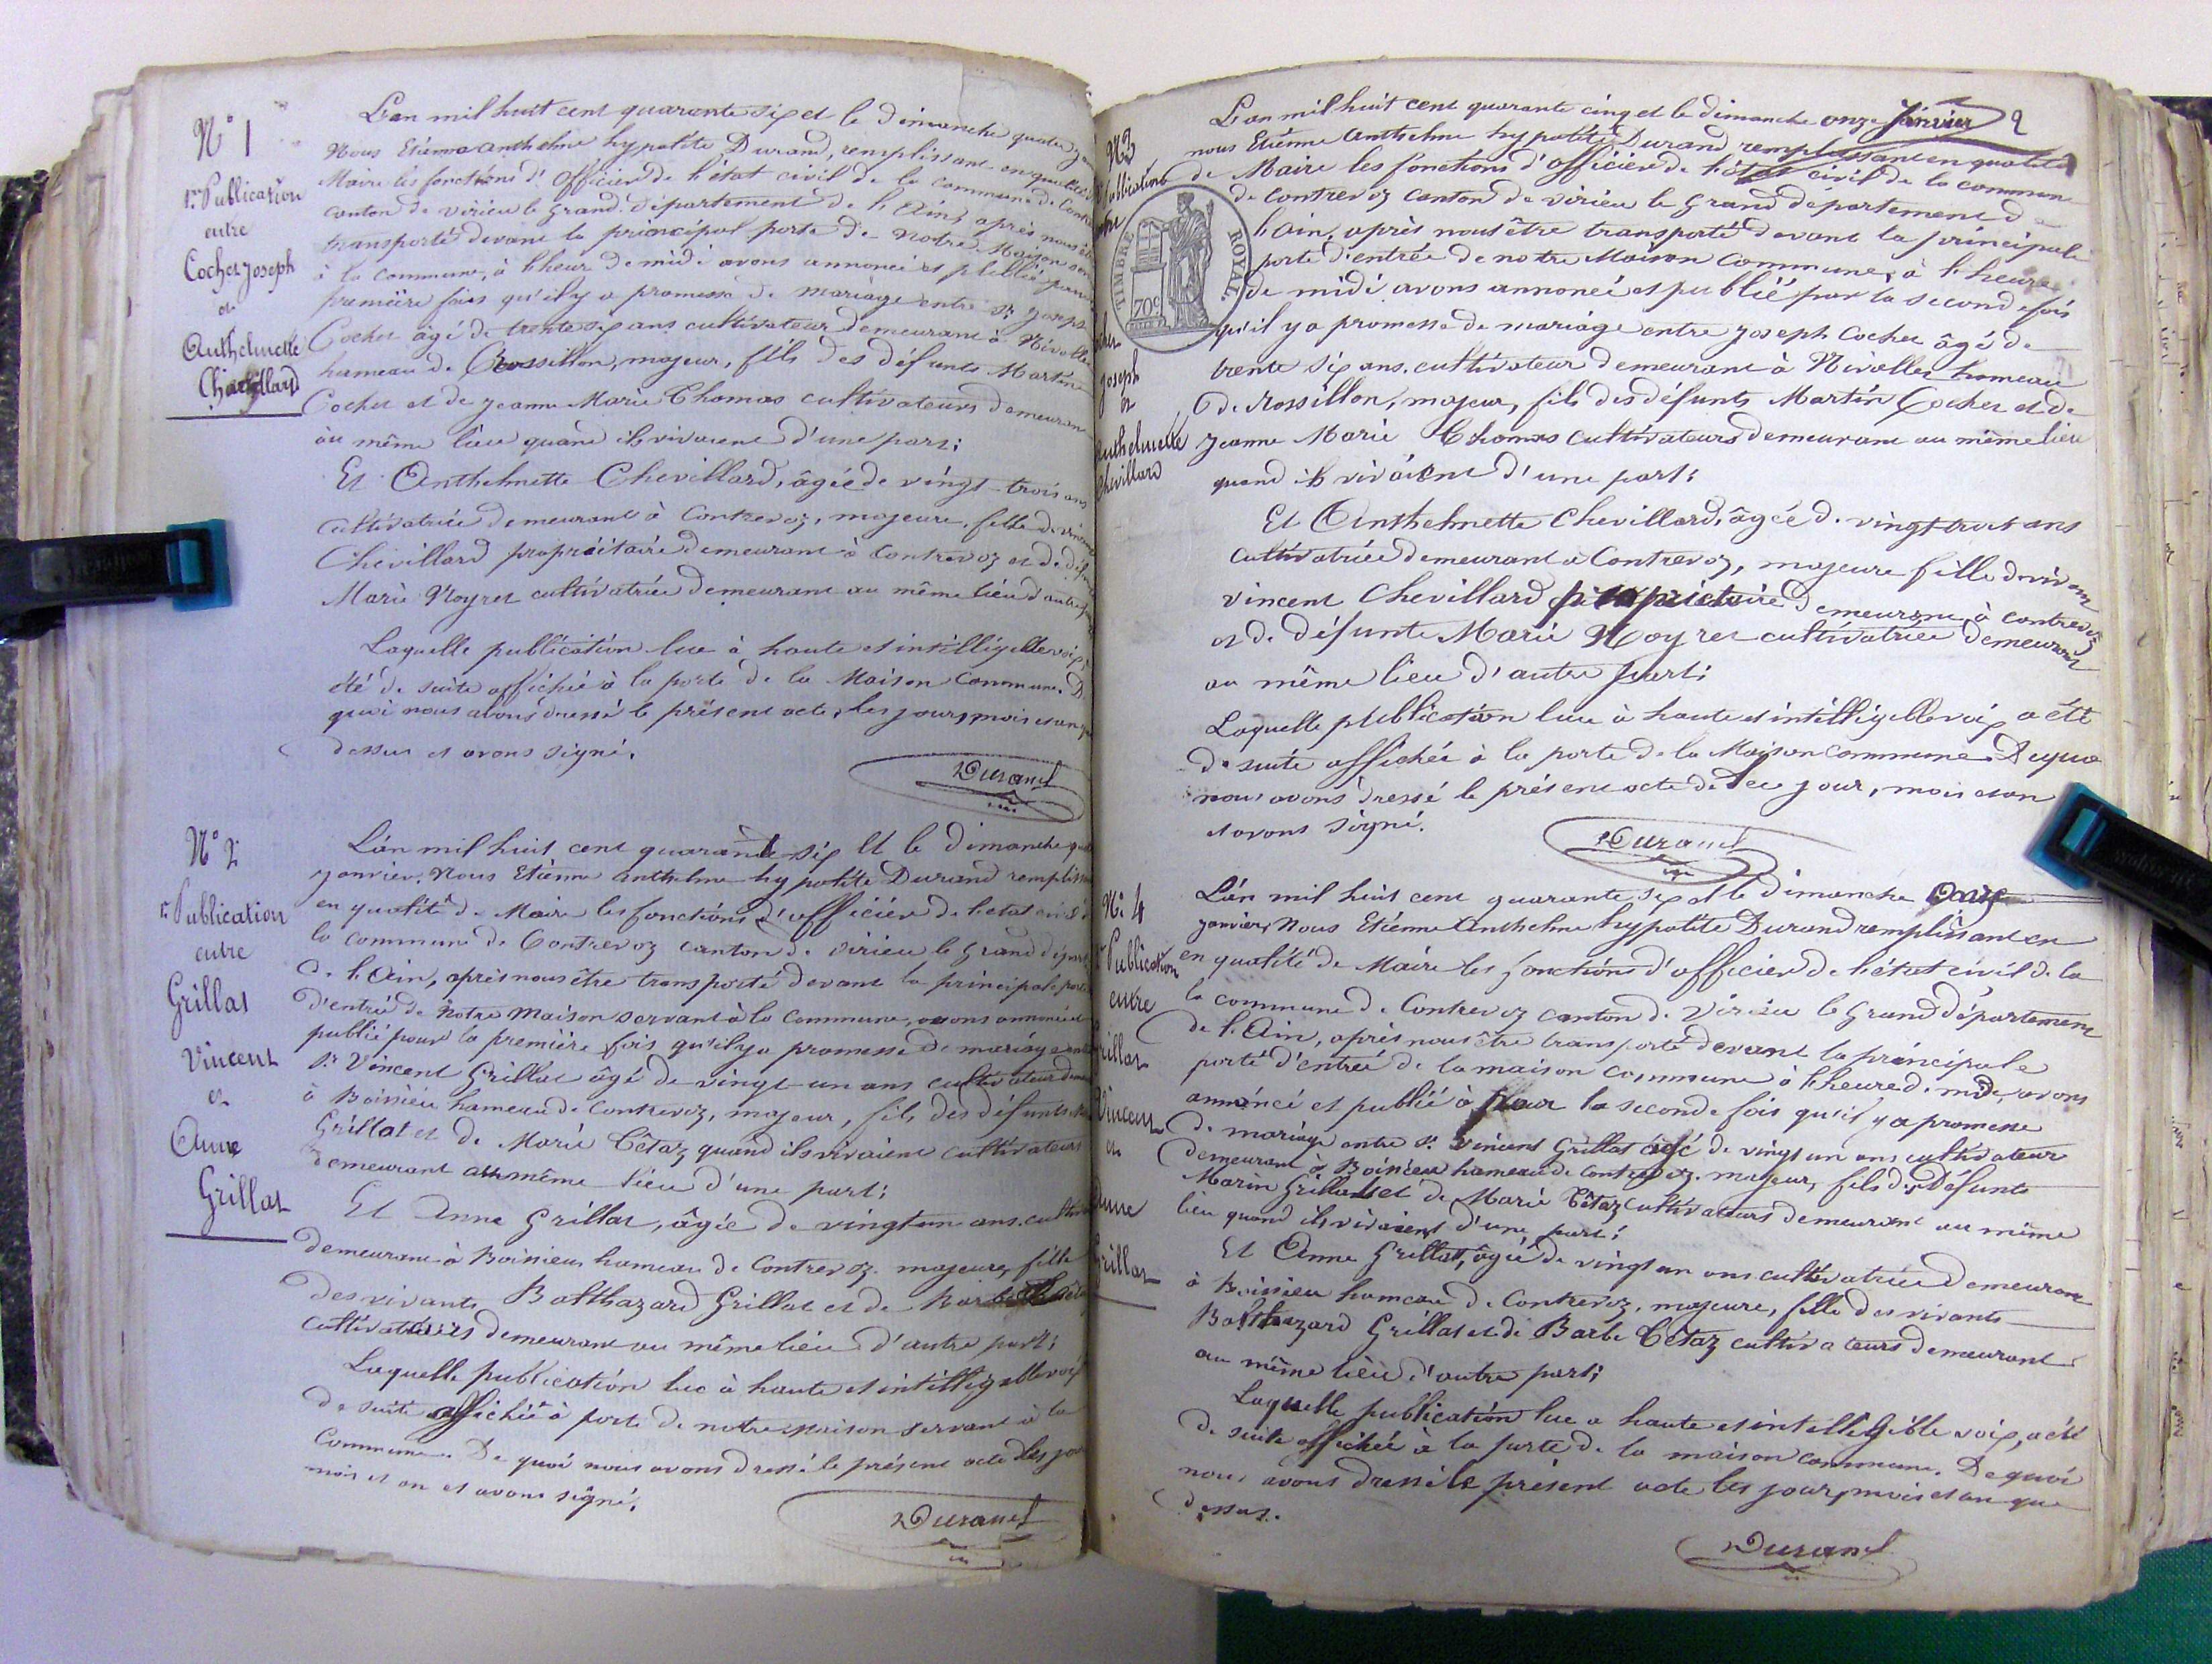 N° 1
1re Publication
entre
Cochet Joseph
et
Anthelmette
Chevillard
L'an mil huit cent quarante six et le dimanche quatre
Nous Etienne Anthelme hypolite Durand, remplissant en qualité
Maire les fonctions d'officier de l'état civil de la commune de
canton de virieu le grand département de l'Ain, après nous
transporté devant la principal porte de notre Maison
à la commune, à l'heur de midi avons annoncé et publié pour
première fois qu'il y a promesse de mariage entre Sr Joseph
Cochet âgé de trente six ans cultivateur demeurant à Nivolle
hameau de Rossillon, majeur, fils des défunts Martin
Cochet et de Jeanne Marie Thomas cultivateurs demeurant
au même lieu quand ils vivaient d'une part;
Et Anthelmette Chevillard, âgée de vingt-trois ans
cultivatrice demeurant à Contrevoz, majeure, fille de
Chevillard propriétaire demeurant à Contrevoz et de
Marie Noyret cultivatrice demeurant au même lieu d'autre
Laquelle publication lue à haute et intelligelle voix
été de suite affichée à la porte de la Maison Commune. De
quoi nous avons dressé le présent acte, les jour, mois et an
dessus et avons signé.
Durand
N° 2
1re Publication
entre
Grillat
Vincent
et
Anne
Grillat
L'an mil huit cent quarante six et le dimanche
janvier. Nous Etienne anthelme hypolite Durand
en qualité de Maire les fonctions d'officier de l'etat civil
la commune de Contrevoz canton de virieu le grand
de l'Ain, après nous être transporté devant la principale porte
d'entrée de notre maison servant à la commune, avons annoncé et
publié pour la première fois qu'il y a promesse de mariage entre
Sr Vincent Grillat âgé de vingt-un ans cultivateur
à Boissieu hameau de Contrevoz, majeur, fils des défunts
Grillat et de Marie Tétaz quand ils vivaient cultivateurs
demeurant au même lieu d'une part;
Et Anne Grillat, âgée de vingt un ans
demeurant à Boissieu hameau de Contrevoz. majeure, fille
des vivants Balthazard Grillat et de
demeurant au même lieu d'autre part;
Laquelle publication lue à haute et intelligelle voix
de suite affichée à porte de notre maison servant à la
Commune. De quoi nous avons dressé le présent acte les
mois et an et avons signé.
Durand
2
N° 3
Publication
Joseph
et
Anthelmette
Chevillard
TIMBRE ROYAL.
70c
L'an mil huit cent quarante cinq et le dimanche onze Janvier
nous Etienne Anthelme hypolite Durand remplissant en qualité
de Maire les fonctions d'officier de l'état civil de la commune
de contrevoz canton de virieu le grand département de
l'Ain, après nous être transporté devant la principale
porte d'entrée de notre Maison Commune, à l'heure
de midi avons annoncé et publié pour la seconde fois
qu'il y a promesse de mariage entre Joseph Cochet âgé de
trente six ans. cultivateur demeurant à Nivollet hameau
de Rossillon, majeur, fils des défunts Martin Cochet et de
Jeanne Marie Thomas cultivateurs demeurant au même lieu
quand ils vivaient d'une part;
Et Anthelmette Chevillard, âgée de vingt-trois ans
cultivatrice demeurant à Contrevoz, majeure fille de vivant
Vincent Chevillard propriétaire demeurant à contrevoz
et de défunte Marie Noyret cultivatrice demeurant
au même lieu d'autre part;
Laquelle publication lue à haute et intelligelle voix a été
de suite affichée à la porte de la Maison commune. De quoi
nous avons dressé le présent acte de jour, mois et an
et avons signé.
Durand
N° 4
Publication
entre
Grillat
Vincent
et
Anne
Grillat
L'an mil huit cent quarante six et le dimanche onze
janvier, Nous Etienne Anthelme hypolite Durand remplissant en
en qualité de Maire les fonctions d'officier de l'état civil de la
la commune de Contrevoz canton de Virieu le Grand département
de l'Ain, après nous être transporté devant la principale
porte d'entrée de la maison commune à l'heure de midi, avons
annoncé et publié à pour la seconde fois qu'il y a promesse
de mariage entre Sr Vincent Grillat âgé de vingt un ans cultivateur
demeurant à Boissieu hameau de Contrevoz. majeur, fils des défunts
Marin Grillat et de Marie Tétaz cultivateurs demeurant au même
lieu quand ils vivaient d'une part;
Et Anne Grillat, âgée de vingt un ans cultivatrice demeurant
à Boissieu hameau de Contrevoz, majeure, fille des vivants
Balthazard Grillat et de Barbe Tétaz cultivateurs demeurant
au même lieu d'autre part;
Laquelle publication lue a haute et intelligible voix, a été
de suite affichée à la porte de la maison commune. De quoi
nous avons dressé le présent acte les jour, mois et an que
dessus.
Durand